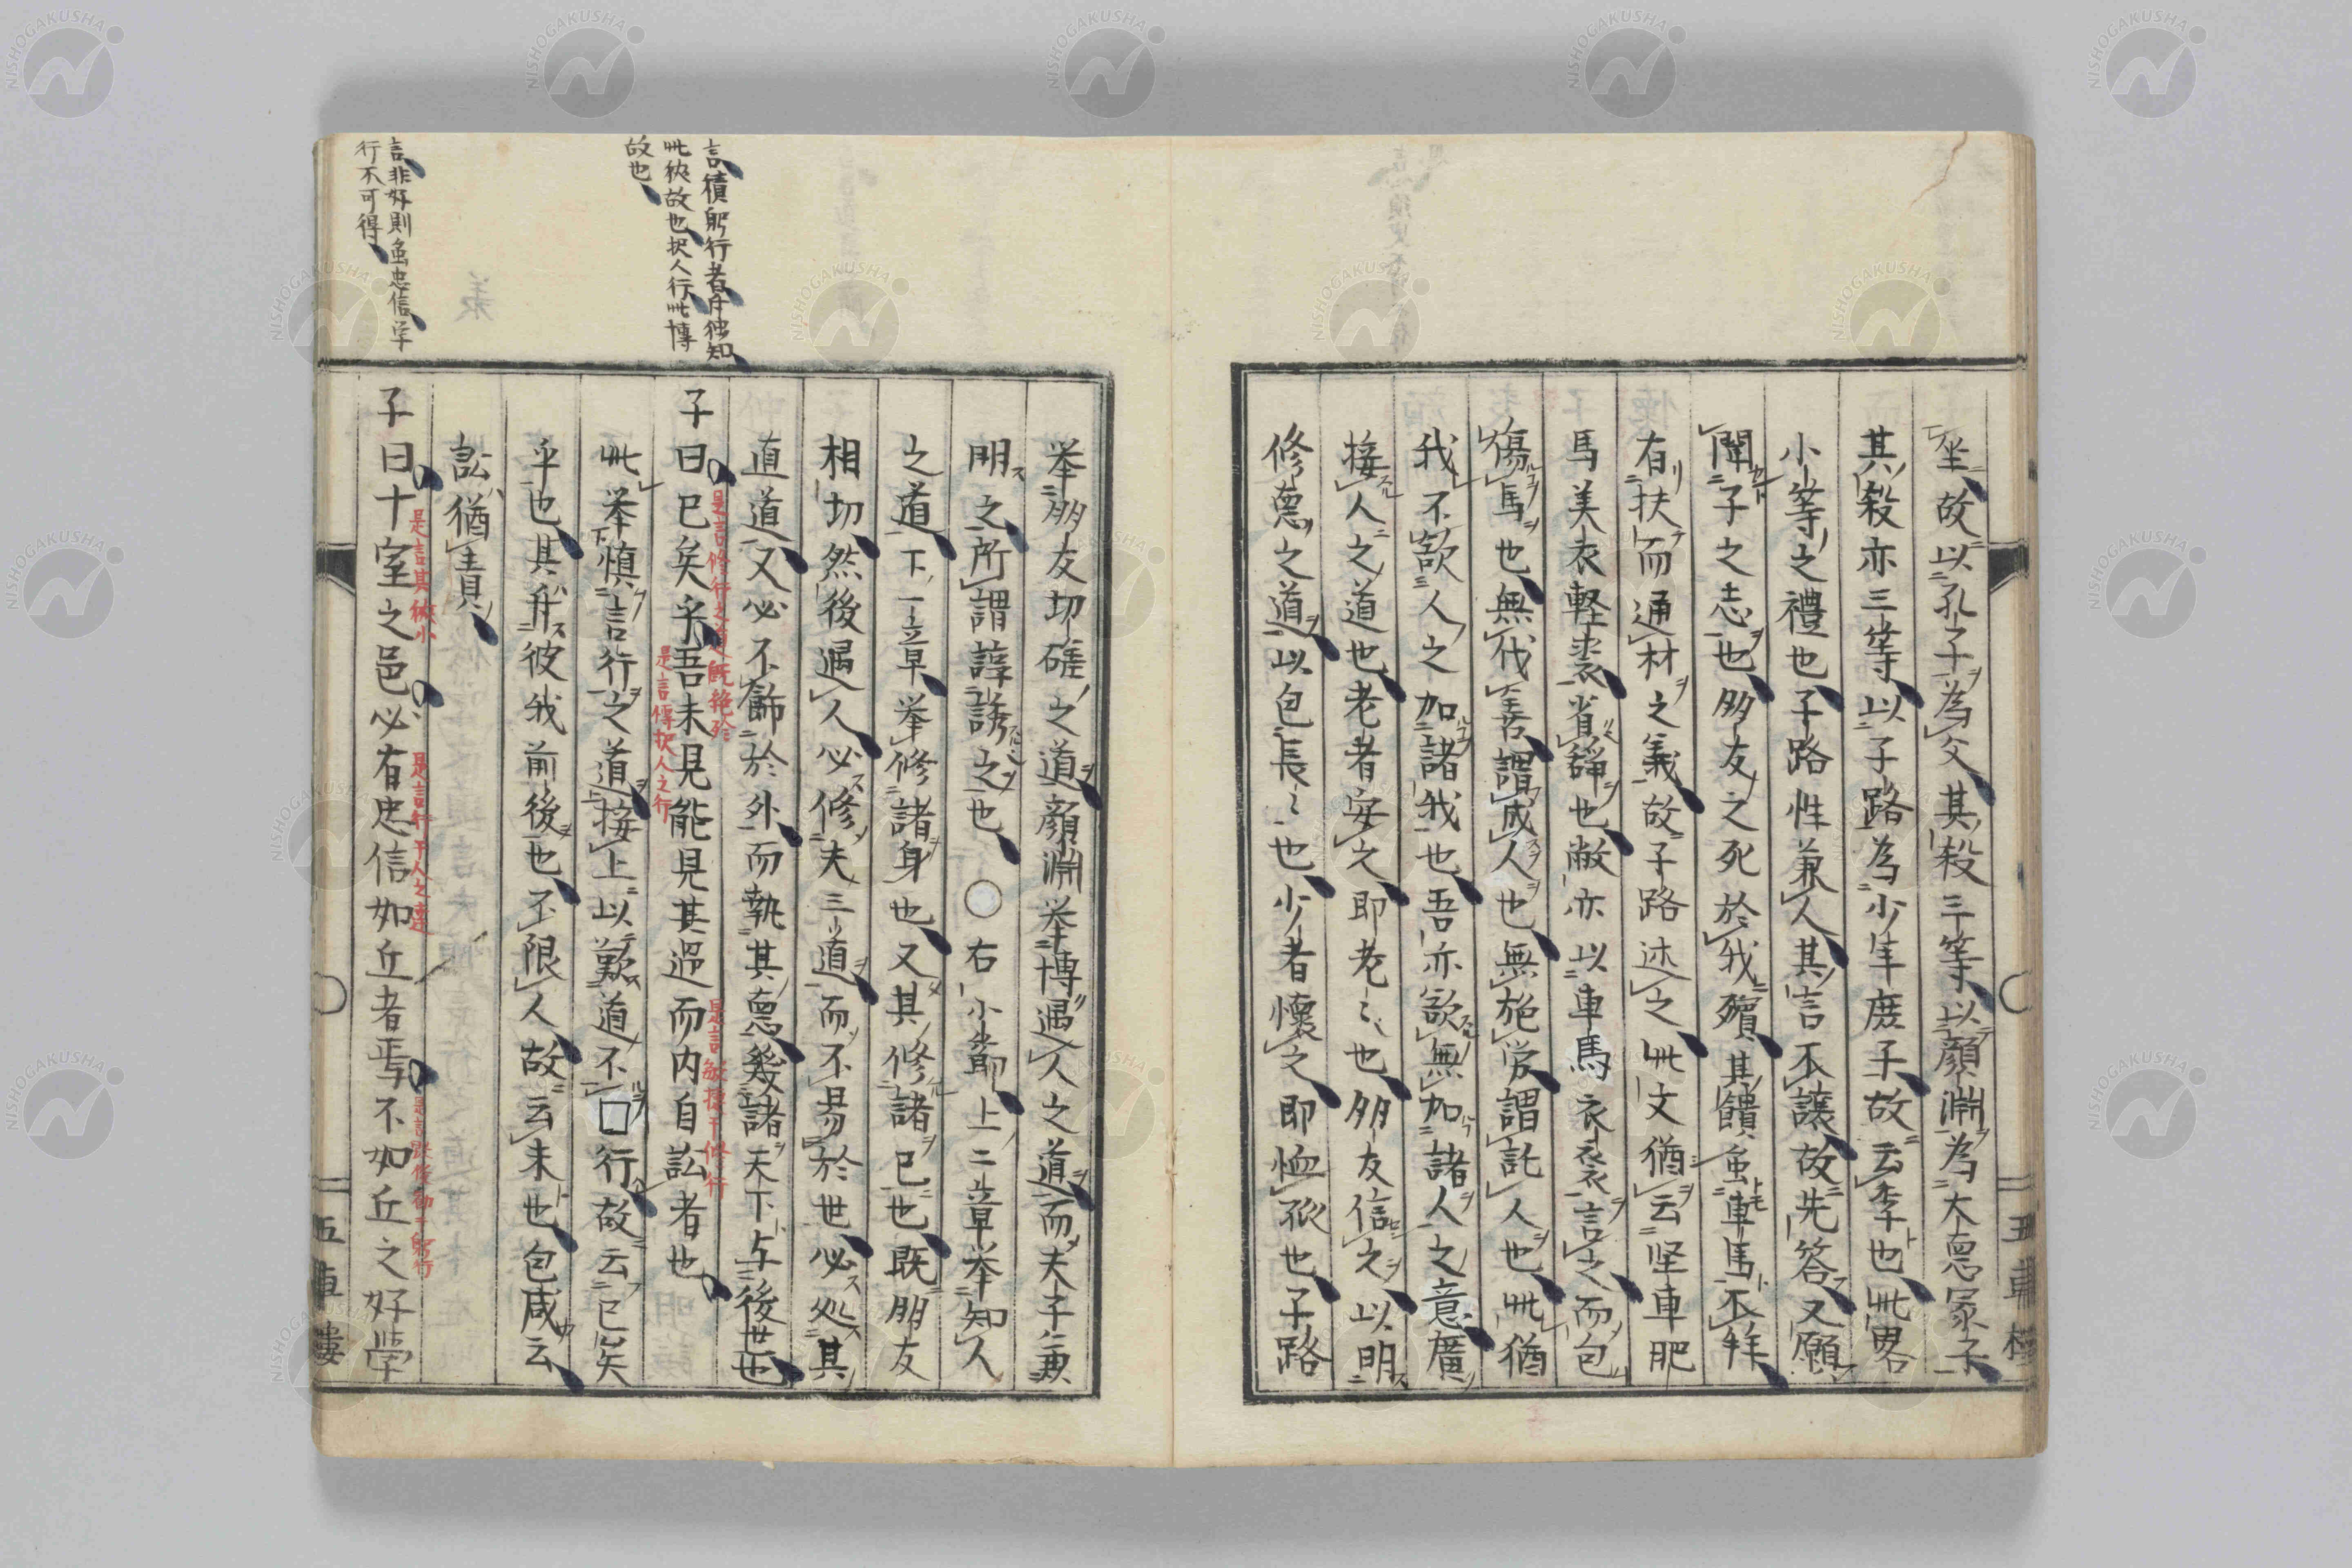 坐故以孔子為父其殺三等以顔淵為大悳冢子
其殺亦三等以子路為少年庶子故云季也此畧
小等之禮也子路性兼人其言不讓故先答又願
聞子之志也朋友之死於我殯其饋虽車馬不拜
有扶而通材之義故子路述之此文猶云坚車肥
馬美衣軽裘省辞也敝亦以車馬衣裘言之而包
傷馬也無伐善謂成人也無施労謂託人也此猶
我不欲人之加諸我也吾亦欲無加諸人之意廣
接人之道也老者安之即老〻也朋友信之以明
修悳之道以包長〻也少者懷之即恤孤也子路
五車樓
挙朋友切磋之道顔淵挙博遇人之道而夫子兼
明之所謂諄誘之也○右小節上二章挙知人
之道下一章挙修諸身也又其修諸已也既朋友
相切然後遇人必修夫三道而不易於世必処其
直道又必不飾於外而執其悳幾諸天下与後世也
子曰已矣乎吾未見能見其過而内自訟者也
此挙慎言行之道接上以歎道不□行故云已矣
乎也其舛彼我前後也不限人故云未也包咸云
訟猶責
子曰十室之邑必有忠信如丘者焉不如丘之好學
言積躬行者身独知
此彼故也択人行此博
故也
言非好則虽忠信学
行不可得
是言修行之道既絶
是言得択人之行
是言敏捷于修行
是言其微小
是言行于人之遠
五車樓
NISHOGAKUSHA